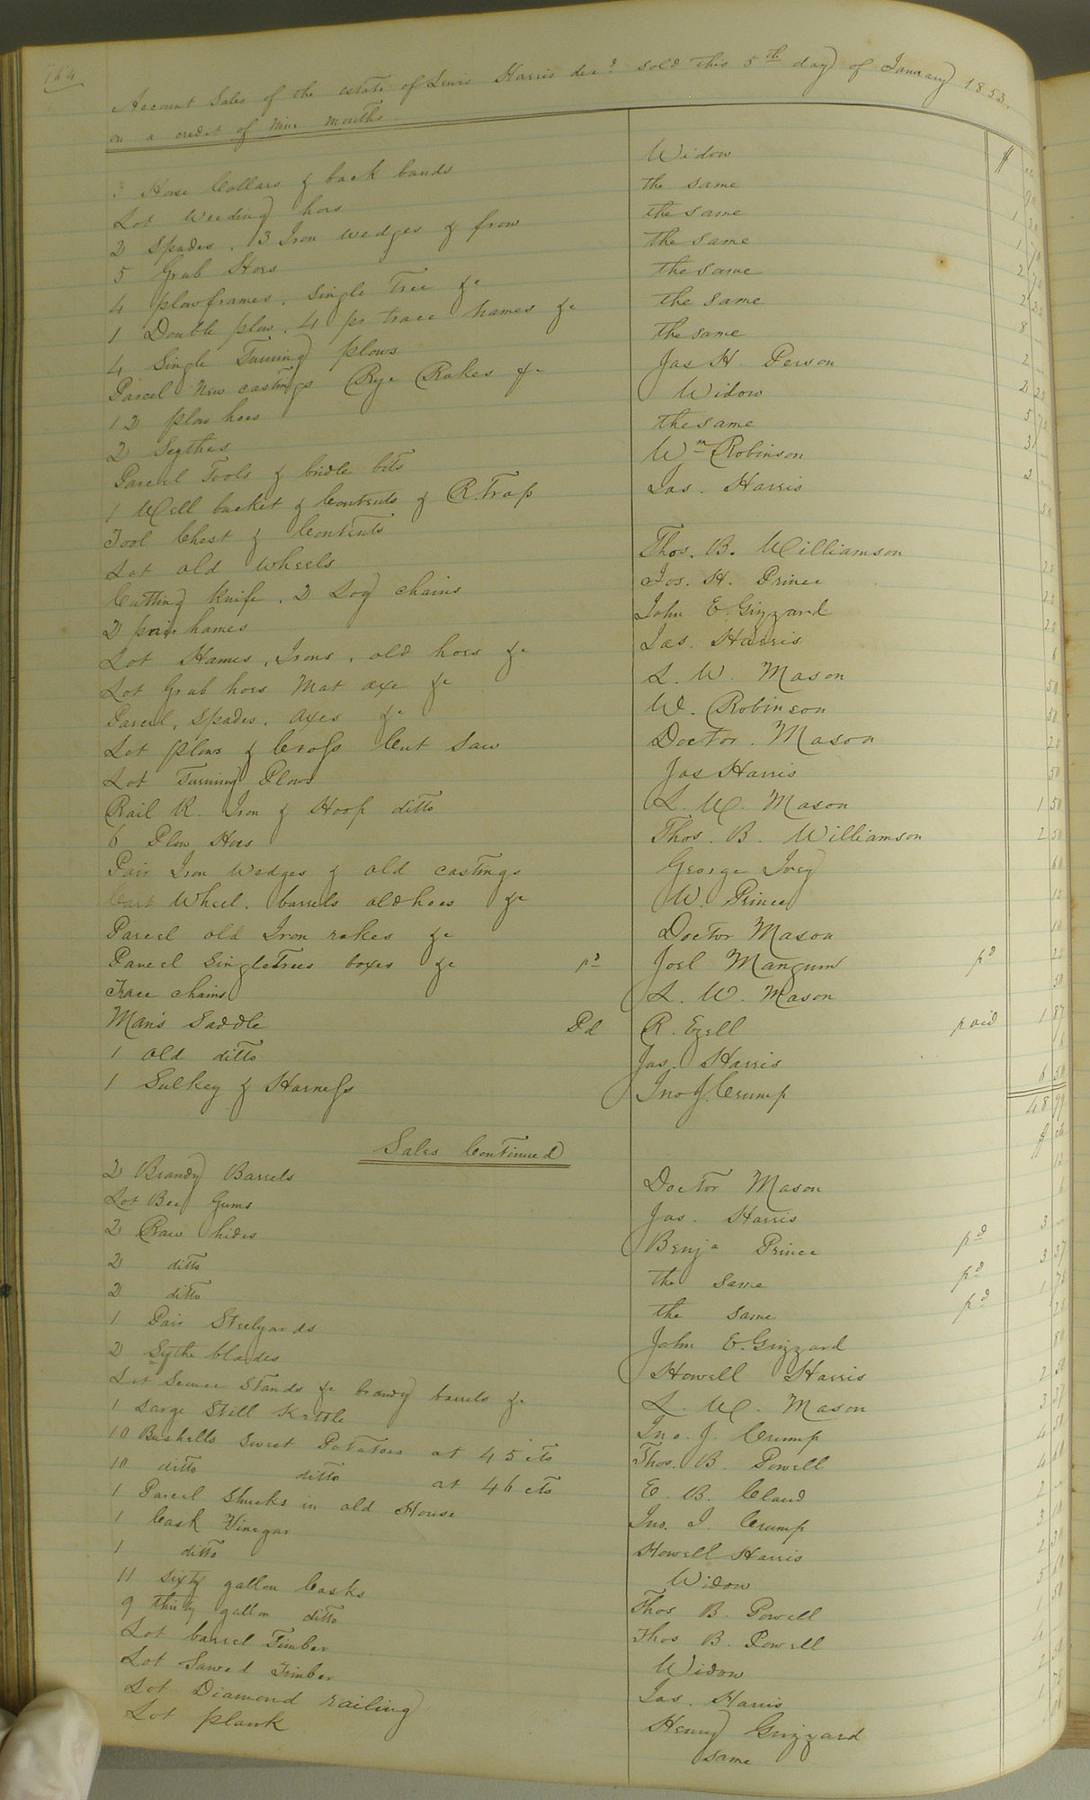 Account Sales of the estate of Lewis Harris decd sold this 5th day of January 1853.
on a credit of Nine Months
Horse Collars & back bands Widow
Lot Weeding hoes the same
2 Spades, 3 Iron wedges & frow the same
5 Grub Hoes the same
4 plow frames, single Tree &c the same
1 Double plow, 4 pr trace hames &c the same
4 Single Turning plows the same
Parcel New castings Rye Rakes &c Jas H Person
12 plow hoes Widow
2 Scythes the same
Parcel Tools & bridle bits Wm Robinson
1 Well bucket & Contents & R. Trap Jas. Harris
Tool Chest & Contents
Lot old wheels Thos. B. Williamson
Cutting Knife, 2 Log chains Jos. H. Prince
2 pair hames John E. Grizzard
Lot Hames, Irons, old hoes &c Jas. Harris
Lot Grub hoes Mat axe &c L. W. Mason
Parcel, Spades, axes &c W. Robinson
Lot plows & Cross Cut Saw Doctor Mason
Lot Turning Plows Jas Harris
Rail R. Iron & Hoop ditto L. W. Mason 1 50
6 Plow Hoes Thos. B. Williamson 2 50
Pair Iron Wedges & old castings George Ivey
Cart Wheel, barrels old hoes &c W. Prince
Parcel old Iron rakes &c Doctor Mason
Parcel Singletrees boxes &c pd Joel Mangum pd
Trace chains L. W. Mason
Man's Saddle Pd R. Ezell paid 1 87
1 old ditto Jas. Harris
1 Sulkey & Harness Jno J. Crump
48 99
Sales Continued
2 Brandy Barrels Doctor Mason
Lot Bee Gums Jas. Harris
2 Raw hides Benja Prince pd 3
2 ditto the same pd 3 37
2 ditto the same pd 1
1 Pair Steelyards John E. Grizzard
2 Sythe blades Howell Harris
Lot Stands &c brandy barrels &c L. W. Mason
1 Large Still Kettle Jno. J. Crump
10 Bushells Sweet Potatoes at 45 cts Thos. B. Powell
10 ditto ditto at 46 cts E. B. Claud
1 Parcel Shucks in old House Jno. J. Crump
1 Cask Vinegar Howell Harris
1 ditto Widow
11 sixty gallon Casks Thos B. Powell
9 thirty gallon ditto Thos B. Powell
Lot barrel Timber Widow
Lot Sawed Timber Jas. Harris
Lot Diamond railing Henry Grizzard
Lot plank same